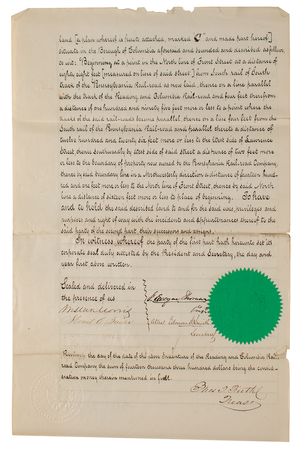 land [a plan whereof is hereto attached, marked C and made part hereof]
situate in the Borough of Columbia aforesaid and bounded and described as follows
to wit: Beginning at a point on the North line of Front Street at a distance of
eighty eight feet [measured on line of said street] from South rail of South
track of the Pennsylvania Rail-road as now laid, thence on a line parallel
with the track of the Reading and Columbia Rail-road and five feet therefrom
a distance of one hundred and ninety five feet more or less to a point where the
tracks of the said rail-roads become parallel, thence on a line five feet from the
South rail of the Pennsylvania Rail-road and parallel thereto a distance of
twelve hundred and twenty six feet more or less to the West side of Lawrence
Street, thence Southwardly by west side of said Street a distance of five feet more
or less to the boundary of property now owned by the Pennsylvania Rail-road Company,
thence by said boundary line in a Northwesterly direction a distance of fourteen hund-
red and one feet more or less to the North line of Front Street, thence by said North
line a distance of sixteen feet more or less to place of beginning. To have
and to hold the said described land to and for the said uses privileges and
purposes and right of way with the incidents and appurtenances thereof to the
said party of the second part their successors and assigns.
In witness whereof the party of the first part hath hereunto set its
corporate seal duly attested by the President and Secretary, the day and
year first above written.
Sealed and delivered in
the presence of us
Attest
Secretary
Received, the day of the date of the above Indenture of the Reading and Columbia Rail
road Company the sum of fourteen thousand three hundred dollars being the consid-
eration money therein mentioned in full.
Treasr